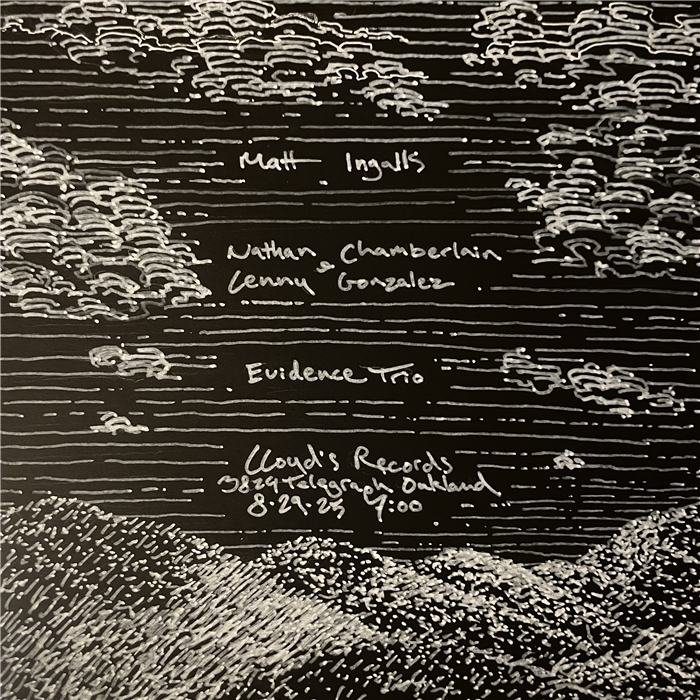 Matt Ingalls
Nathan Chamberlain
&
Lenny Gonzalez
Evidence Trio
Lloyd's Records
3829 Telegraph Oakland
8.29.25 7:00